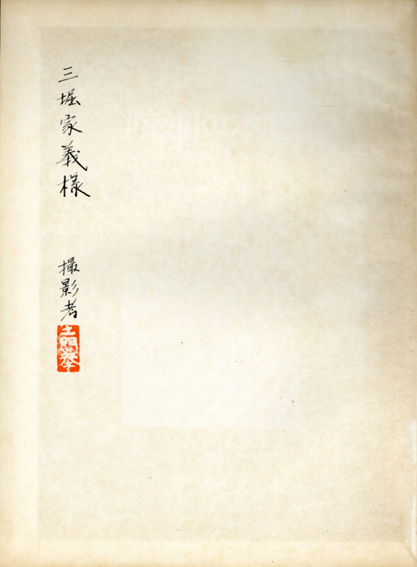 三堀家義様
撮影者
土門拳